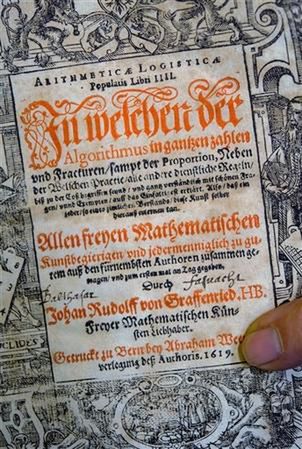 ARITHMETICÆ LOGISTICÆ
Popularis Libri IIII.
In welchen der
Algorithmus in gantzen zahlen
vnd Fracturen / sampt der Proportion, Neben
der Welschen Practic, alle andere dienstliche Regeln /
biß zu der Coß begriffen seind / vnd gantz verständlich mit schönen Fra-
gen / vnd Exemplen / auff das
jeder / so eines zimlichen Verstands, diese Kunst selber
hierauß erlernen kan.
Allen freyen Mathematischen
Kunstbegierigen vnd jedermenniglich zu gu-
tem auß den fürnembsten Authoren zusammen ge-
tragen / vnd zum ersten mal an Tag gegeben,
Durch
Balthasar
Johan Rudolff von Graffenried, HB.
Freyer Mathematischen Kün-
sten liebhaber.
Getruckt zu Bern bey Abraham We
verlegung deß Authoris. 1619.
CLIDES